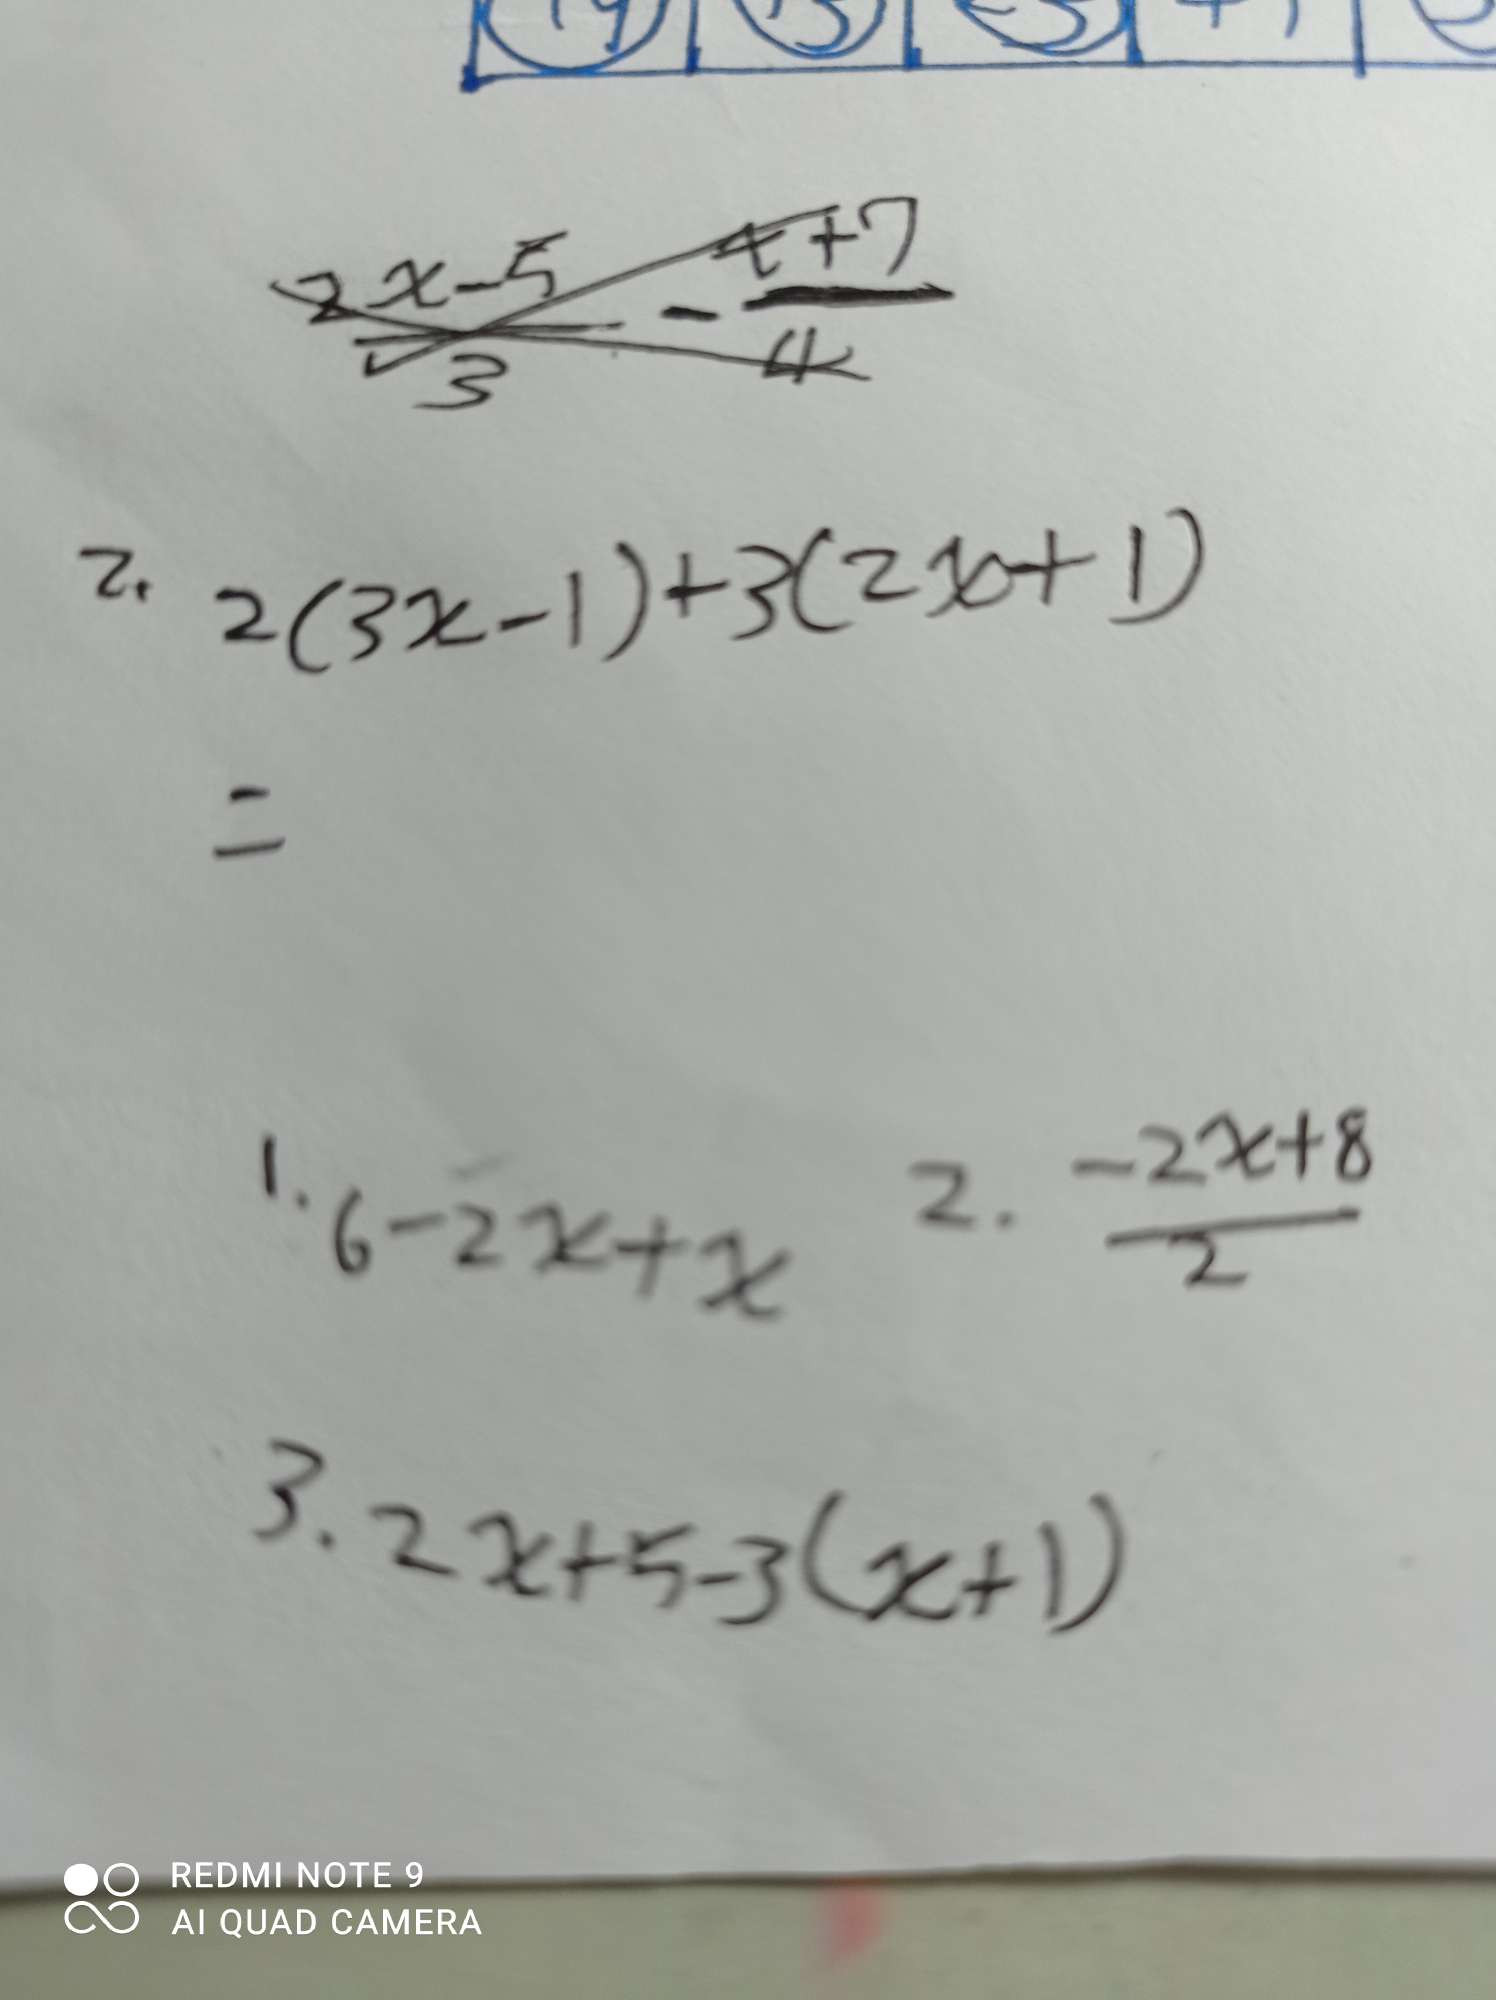 2x-5 - x+7
3 4
2. 2(3x-1)+3(2x+1)
=
1. 6-2x+x 2. -2x+8
2
3. 2x+5-3(x+1)
REDMI NOTE 9
AI QUAD CAMERA